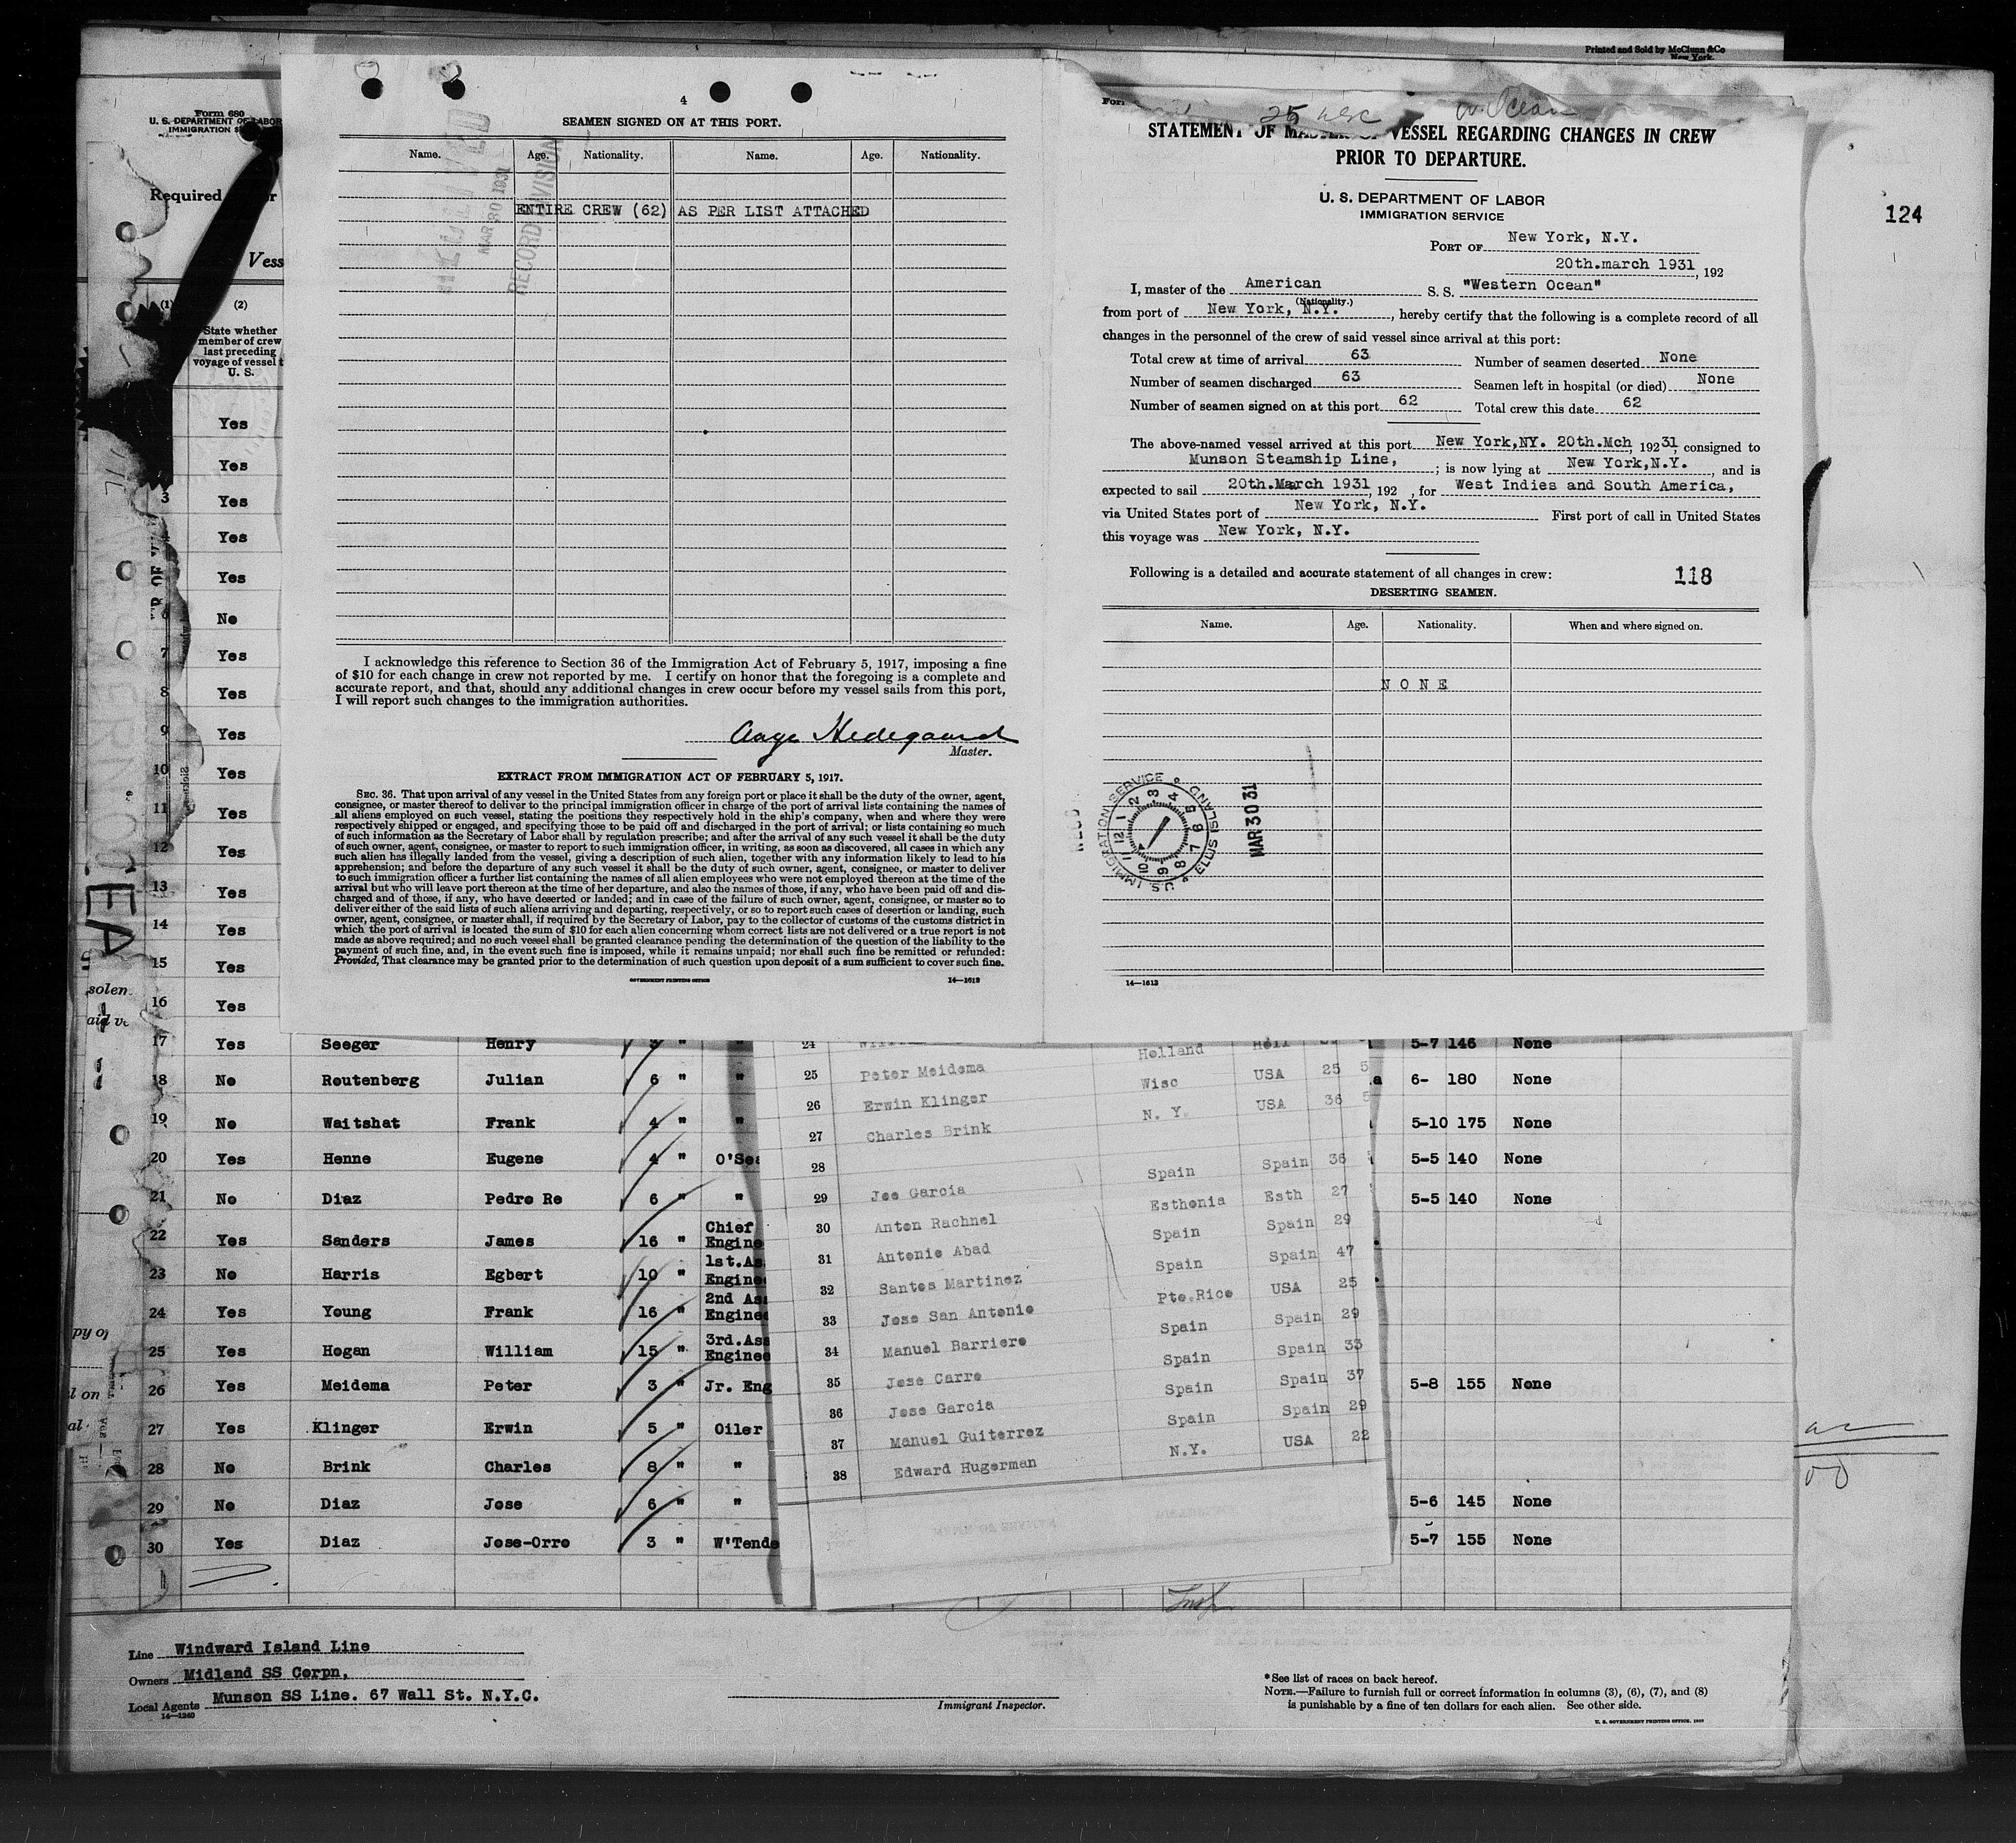 Printed and Sold by McClunn &Co
New York.
Form 680
U. S. DEPARTMENT OF LABOR
IMMIGRATION
Required
Vess
(1) (2)
State whether
member of crew
last preceding
voyage of vessel t
U. S.
Yes
Yes
3 Yes
Yes
Yes
No
7 Yes
8 Yes
9 Yes
10 Yes
11 Yes
12 Yes
13 Yes
14 Yes
15 Yes
16 Yes
4
SEAMEN SIGNED ON AT THIS PORT.
Name. Age. Nationality. Name. Age. Nationality.
ENTIRE CREW (62) AS PER LIST ATTACHED
MAR 30 1931
RECORD DIVISION
I acknowledge this reference to Section 36 of the Immigration Act of February 5, 1917, imposing a fine
of $10 for each change in crew not reported by me. I certify on honor that the foregoing is a complete and
accurate report, and that, should any additional changes in crew occur before my vessel sails from this port,
I will report such changes to the immigration authorities.
Aage Hedegaard
Master.
EXTRACT FROM IMMIGRATION ACT OF FEBRUARY 5, 1917.
SEC. 36. That upon arrival of any vessel in the United States from any foreign port or place it shall be the duty of the owner, agent,
consignee, or master thereof to deliver to the principal immigration officer in charge of the port of arrival lists containing the names of
all aliens employed on such vessel, stating the positions they respectively hold in the ship's company, when and where they were
respectively shipped or engaged, and specifying those to be paid off and discharged in the port of arrival; or lists containing so much
of such information as the Secretary of Labor shall by regulation prescribe; and after the arrival of any such vessel it shall be the duty
of such owner, agent, consignee, or master to report to such immigration officer, in writing, as soon as discovered, all cases in which any
such alien has illegally landed from the vessel, giving a description of such alien, together with any information likely to lead to his
apprehension; and before the departure of any such vessel it shall be the duty of such owner, agent, consignee, or master to deliver
to such immigration officer a further list containing the names of all alien employees who were not employed thereon at the time of the
arrival but who will leave port thereon at the time of her departure, and also the names of those, if any, who have been paid off and dis-
charged and of those, if any, who have deserted or landed; and in case of the failure of such owner, agent, consignee, or master so to
deliver either of the said lists of such aliens arriving and departing, respectively, or so to report such cases of desertion or landing, such
owner, agent, consignee, or master shall, if required by the Secretary of Labor, pay to the collector of customs of the customs district in
which the port of arrival is located the sum of $10 for each alien concerning whom correct lists are not delivered or a true report is not
made as above required; and no such vessel shall be granted clearance pending the determination of the question of the liability to the
payment of such fine, and, in the event such fine is imposed, while it remains unpaid; nor shall such fine be remitted or refunded:
Provided, That clearance may be granted prior to the determination of such question upon deposit of a sum sufficient to cover such fine.
GOVERNMENT PRINTING OFFICE 14—1612
W. Ocean
STATEMENT OF MASTER OF VESSEL REGARDING CHANGES IN CREW
PRIOR TO DEPARTURE.
U. S. DEPARTMENT OF LABOR
IMMIGRATION SERVICE
124
PORT OF New York, N.Y.
20th.march 1931, 192
I, master of the American S. S. "Western Ocean"
(Nationality.)
from port of New York, N.Y., hereby certify that the following is a complete record of all
changes in the personnel of the crew of said vessel since arrival at this port:
Total crew at time of arrival 63 Number of seamen deserted None
Number of seamen discharged 63 Seamen left in hospital (or died) None
Number of seamen signed on at this port 62 Total crew this date 62
The above-named vessel arrived at this port New York,NY. 20th.Mch, 19231, consigned to
Munson Steamship Line, ; is now lying at New York,N.Y., and is
expected to sail 20th.March 1931, 192 , for West Indies and South America,
via United States port of New York, N.Y. First port of call in United States
this voyage was New York, N.Y.
Following is a detailed and accurate statement of all changes in crew: 118
DESERTING SEAMEN.
Name. Age. Nationality. When and where signed on.
NONE
U.S. IMMIGRATION SERVICE ELLIS ISLAND
MAR 30 31
14—1612
17 Yes Seeger Henry 5 " " 5-7 146 None
18 No Routenberg Julian 6 " " 6- 180 None
19 No Waitshat Frank 4 " " 5-10 175 None
20 Yes Henne Eugene 4 " O'Sea 5-5 140 None
21 No Diaz Pedro Re 6 " " 5-5 140 None
22 Yes Sanders James 16 " Chief Engine
23 No Harris Egbert 10 " 1st.As Enginee
24 Yes Young Frank 16 " 2nd As Enginee
25 Yes Hogan William 15 " 3rd.Ass Enginee
26 Yes Meidema Peter 3 " Jr. Eng 5-8 155 None
27 Yes Klinger Erwin 5 " Oiler
28 No Brink Charles 8 " "
29 No Diaz Jose 6 " " 5-6 145 None
30 Yes Diaz Jose-Orro 3 " W'Tende 5-7 155 None
24
25 Peter Meidema Holland Holl
26 Erwin Klinger Wisc USA 25 5
27 Charles Brink N. Y. USA 36 5
28
29 Joe Garcia Spain Spain 36
30 Anton Rachnel Esthonia Esth 27
31 Antonio Abad Spain Spain 29
32 Santos Martinez Spain Spain 47
33 Jose San Antonio Pto.Rico USA 25
34 Manuel Barriero Spain Spain 29
35 Jose Carro Spain Spain 33
36 Jose Garcia Spain Spain 37
37 Manuel Guiterrez Spain Spain 29
38 Edward Hugerman N.Y. USA 22
Line Windward Island Line
Owners Midland SS Corpn,
Local Agents Munson SS Line. 67 Wall St. N.Y.C.
14—1240
Immigrant Inspector.
*See list of races on back hereof.
NOTE.—Failure to furnish full or correct information in columns (3), (6), (7), and (8)
is punishable by a fine of ten dollars for each alien. See other side.
U. S. GOVERNMENT PRINTING OFFICE